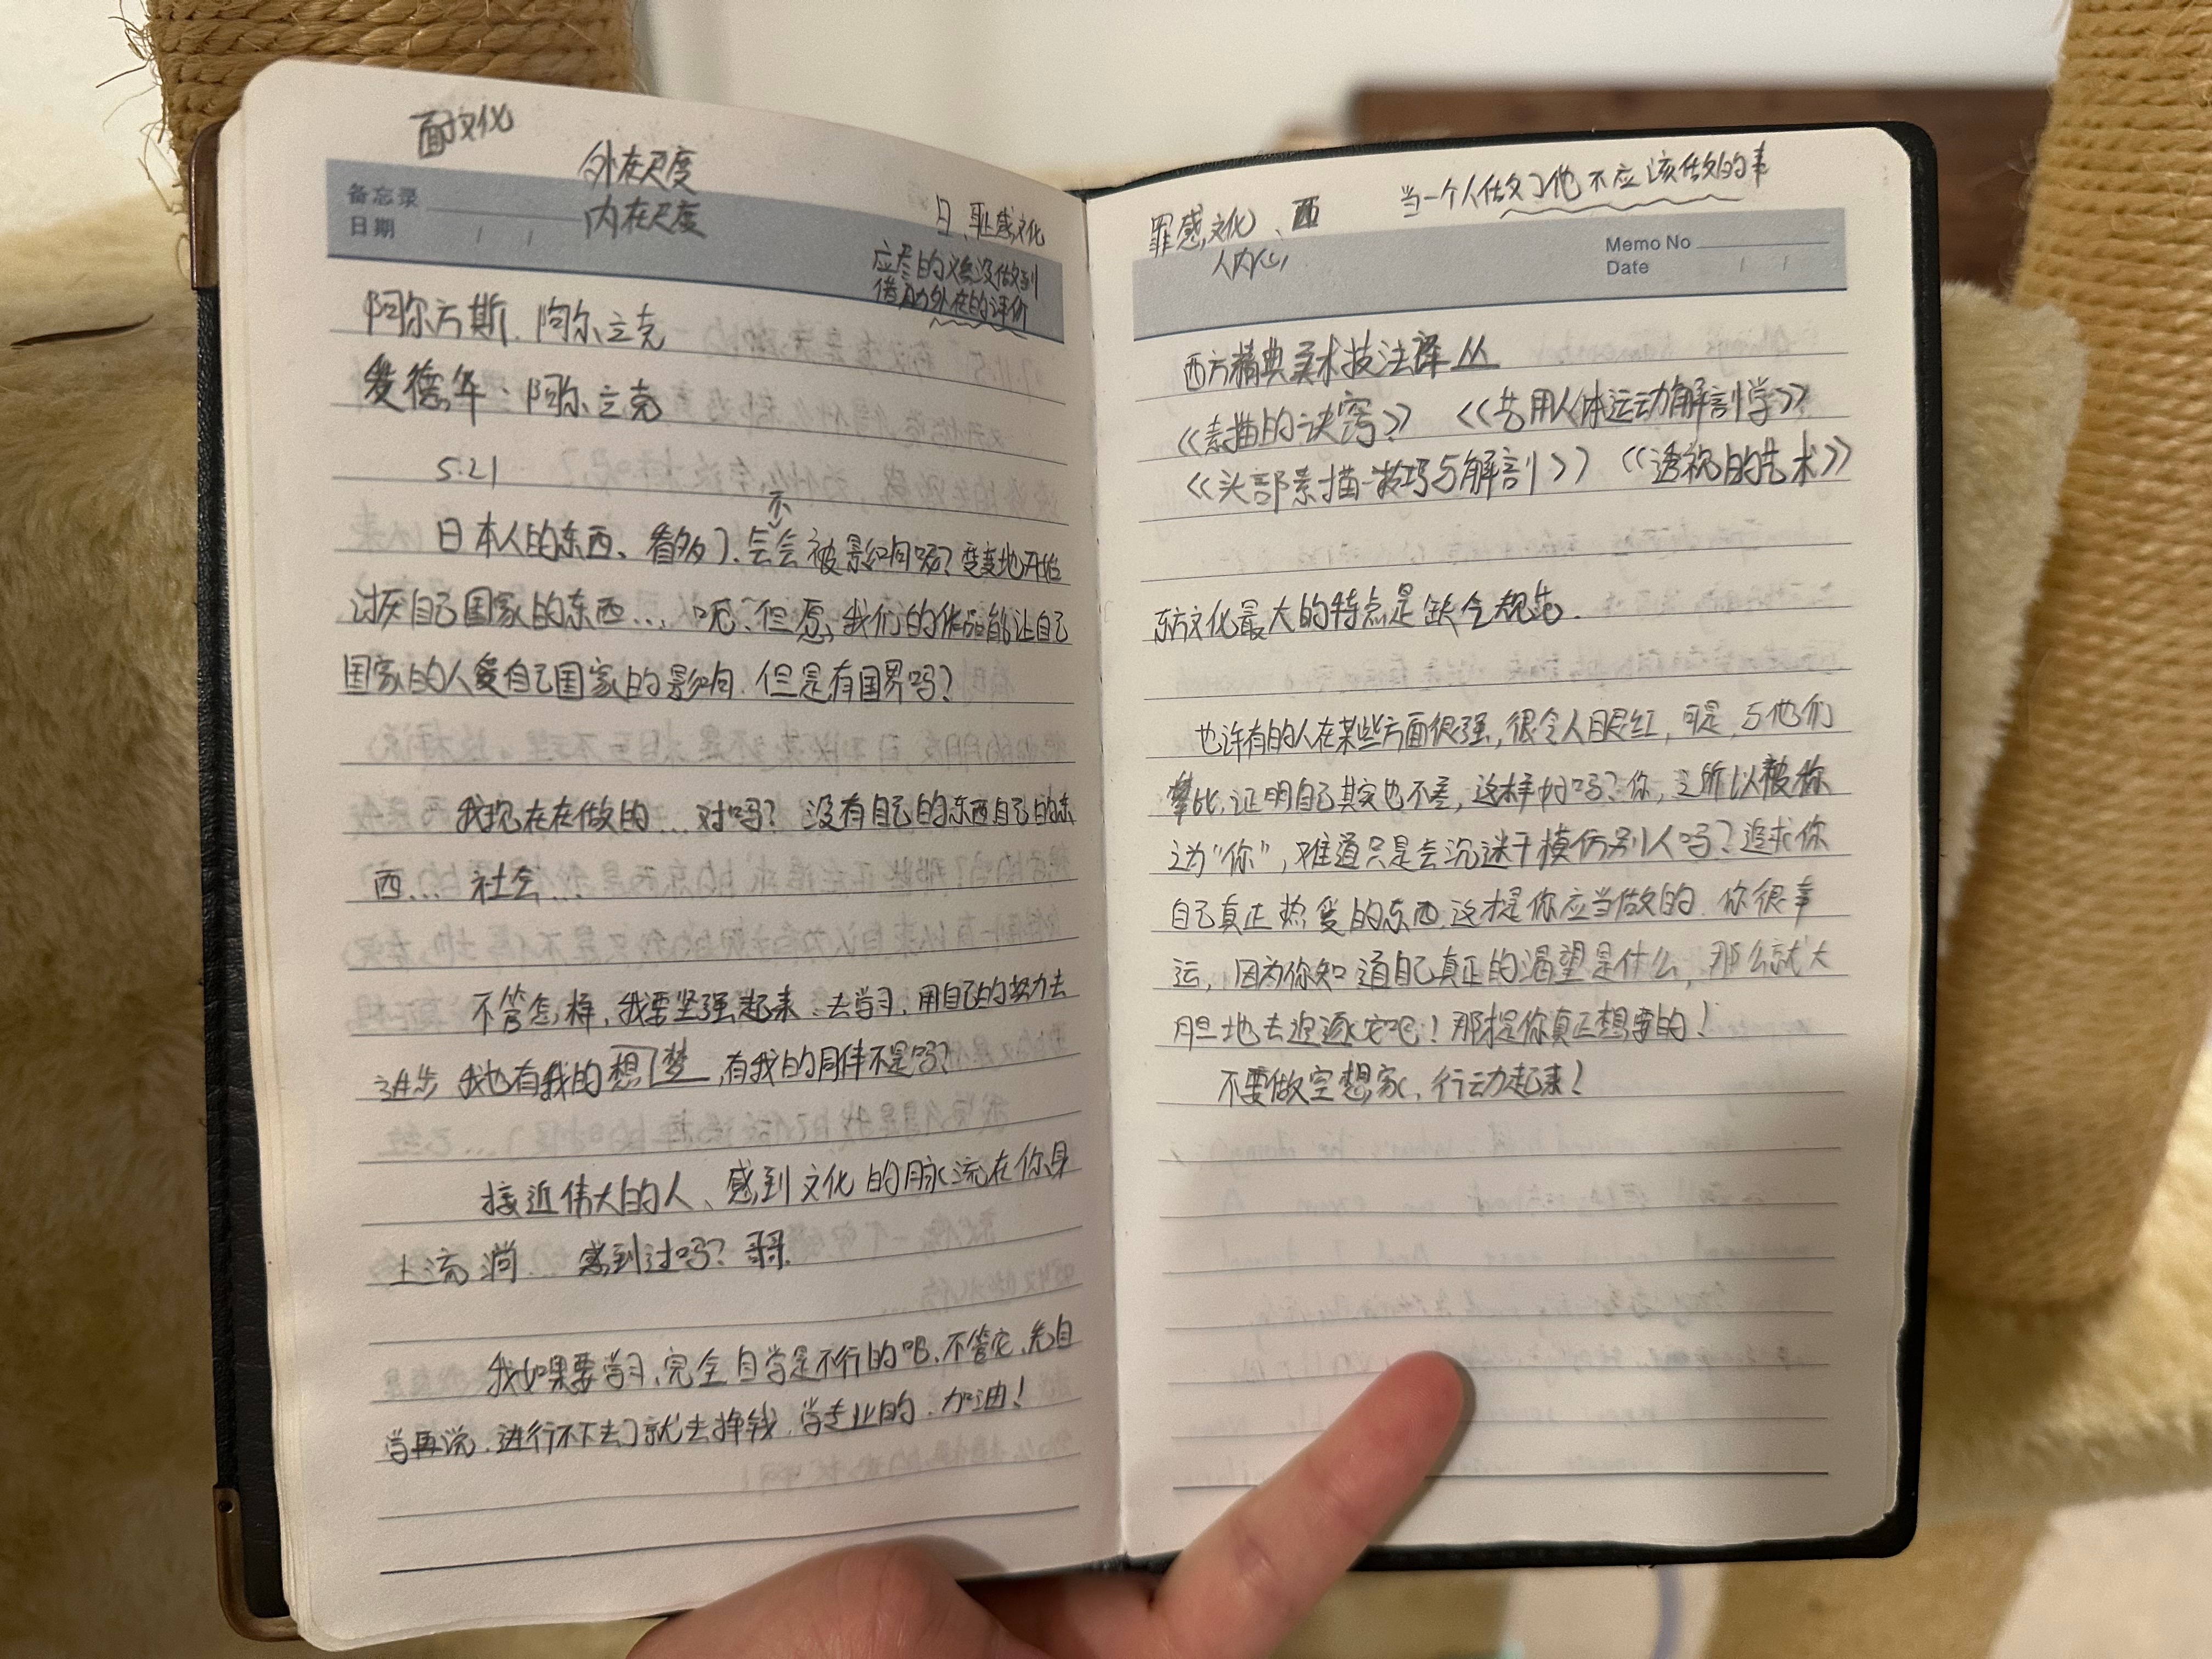 面文化
外在尺度
备忘录
内在尺度
日期
日、耻感文化
应尽的义务没做到
借助外在的评价
阿尔方斯.阿尔立克
爱德华.阿尔立克
5.21
不
日本人的东西、看多了.会会被影响呢?变变地开始
讨厌自己国家的东西... 呃、但愿,我们的作品能让自己
国家的人受自己国家的影响.但是有国界吗?
我现在在做的...对吗? 没有自己的东西自己的东
西... 社会...
不管怎样,我要坚强起来.去学习,用自己的努力去
进步 我也有我的想梦,有我的同伴不是吗?
接近伟大的人、感到文化的脉流在你身
上流淌... 感到过吗? 哥哥.
我如果要学习,完全自学是不行的吧,不管它,先自
学再说.进行不下去了就去挣钱.学专业的.加油!
罪感文化、西
当一个人做了他不应该做的事
人内心
Memo No
Date
西方精典美术技法译丛
《素描的诀窍》 《艺用人体运动解剖学》
《头部素描-技巧与解剖》 《透视的艺术》
东方文化最大的特点是缺令规范.
也许有的人在某些方面很强,很令人眼红,可是,与他们
攀比,证明自己其实也不差,这样好吗?你,之所以被称
之为“你”,难道只是去沉迷于模仿别人吗?追求你
自己真正热爱的东西,这才是你应当做的.你很幸
运,因为你知道自己真正的渴望是什么,那么就大
胆地去追逐它吧!那才是你真正想要的!
不要做空想家,行动起来!